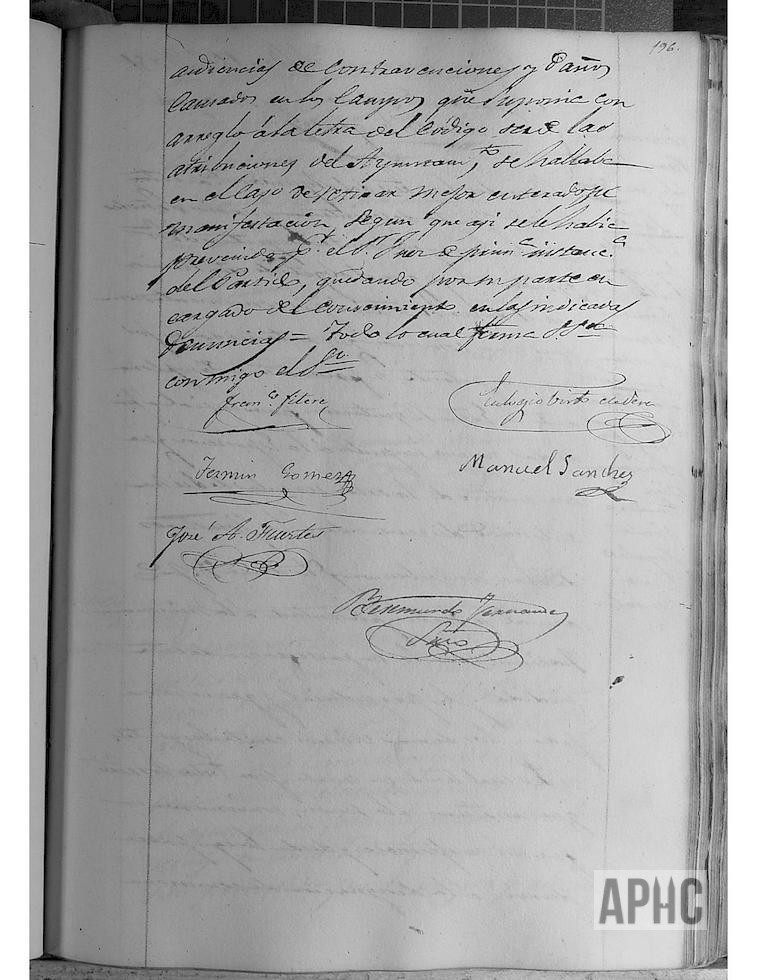 196.
audiencias de Contravenciones y Daños
Causados en los Campos que suponia con
arreglo á la letra del Código ser de las
atribuciones del Ayuntam.to, se hallaba
en el Caso de retirar mejor enterado su
manifestación, segun que asi se le habia
prevenido p.r el S.r Juez de prim.a instanc.a
del Partido, quedando por su parte en
cargado del Conocimiento en las indicadas
Denuncias = Todo lo cual firma
con migo el S.rio
Fran.co
Eulogio
Fermin Gomez
Manuel Sanchez
José A. Fuertes
Beremundo Fernandez
Srio
APHC